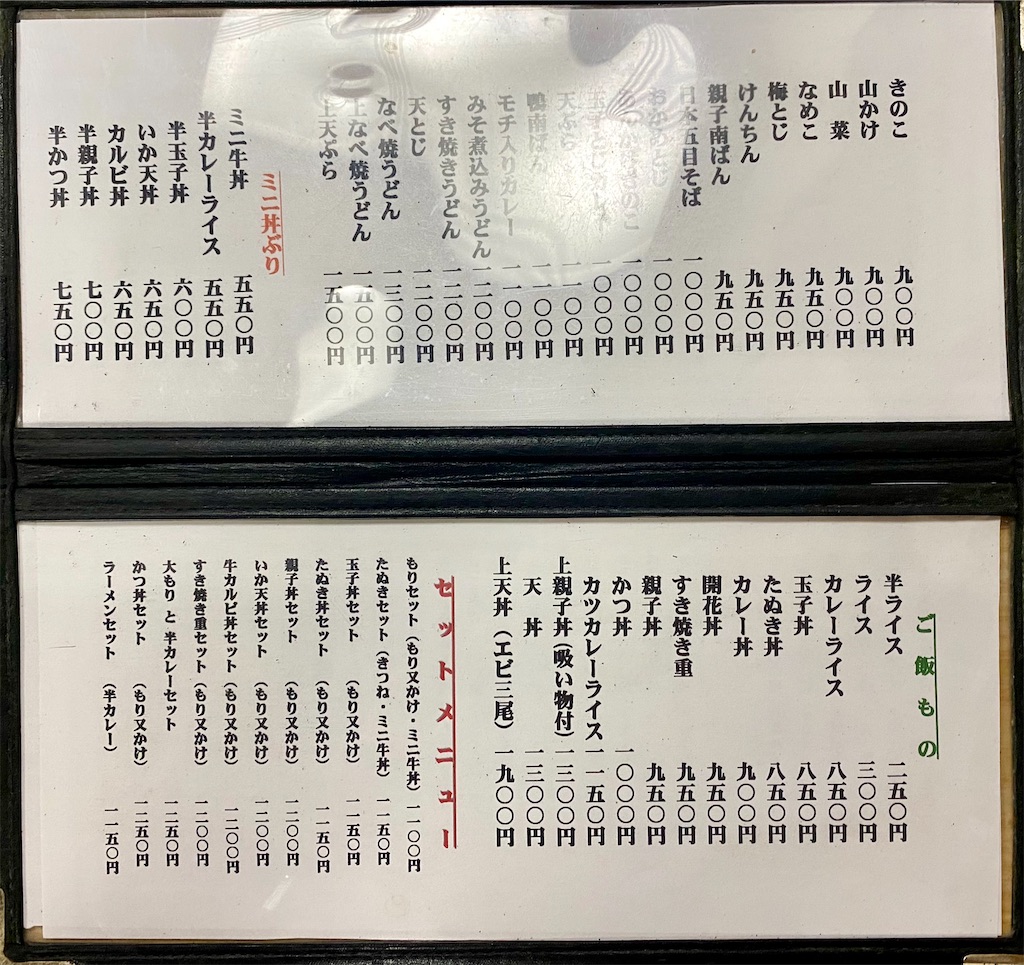 きのこ 九〇〇円
山かけ 九〇〇円
山 菜 九〇〇円
なめこ 九五〇円
梅とじ 九五〇円
けんちん 九五〇円
親子南ばん 九五〇円
日本五目そば 一〇〇〇円
おかめとじ 一〇〇〇円
きのこ 一〇〇〇円
玉子とじカレー 一〇〇〇円
天ぷら 一一〇〇円
鴨南ばん 一一〇〇円
モチ入りカレー 一一〇〇円
みそ煮込みうどん 一二〇〇円
すき焼きうどん 一二〇〇円
天とじ 一二〇〇円
なべ焼うどん 一三〇〇円
上なべ焼うどん 一五〇〇円
上天ぷら 一五〇〇円
ミニ丼ぶり
ミニ牛丼 五五〇円
半カレーライス 五五〇円
半玉子丼 六〇〇円
いか天丼 六五〇円
カルビ丼 六五〇円
半親子丼 七〇〇円
半かつ丼 七五〇円
ご飯もの
半ライス 二五〇円
ライス 三〇〇円
カレーライス 八五〇円
玉子丼 八五〇円
たぬき丼 八五〇円
カレー丼 九〇〇円
開花丼 九五〇円
すき焼き重 九五〇円
親子丼 九五〇円
かつ丼 一〇〇〇円
カツカレーライス 一一五〇円
上親子丼（吸い物付） 一三〇〇円
天 丼 一三〇〇円
上天丼（エビ三尾） 一九〇〇円
セットメニュー
もりセット（もり又かけ・ミニ牛丼） 一一〇〇円
たぬきセット（きつね・ミニ牛丼） 一一五〇円
玉子丼セット （もり又かけ） 一一五〇円
たぬき丼セット （もり又かけ） 一一五〇円
親子丼セット （もり又かけ） 一二〇〇円
いか天丼セット （もり又かけ） 一二〇〇円
牛カルビ丼セット（もり又かけ） 一二〇〇円
すき焼き重セット（もり又かけ） 一二〇〇円
大もり と 半カレーセット 一二五〇円
かつ丼セット （もり又かけ） 一二五〇円
ラーメンセット （半カレー） 一一五〇円